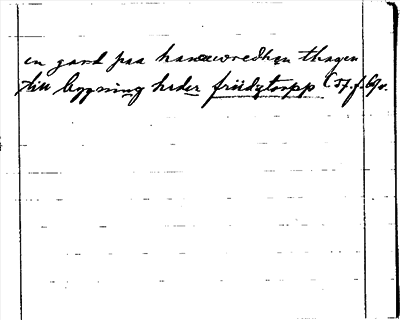 en gard paa hanæwredhen thagen
till bygning heder friidztorpp (Jf. f. 69v.